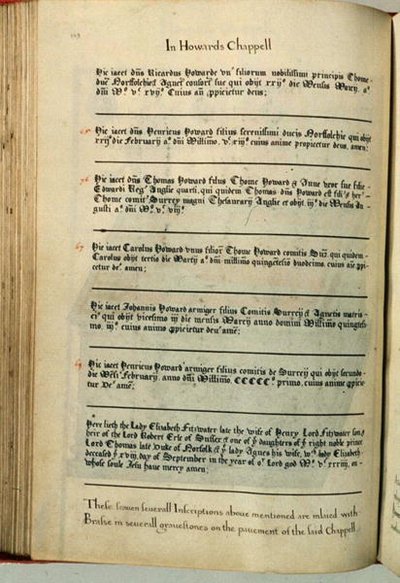 In Howards Chappell
Hic iacet dñs Ricardus Howarde vn' filiorum nobilissimi principis Thome
duc Norffolchie & Agnet' consort' sue qui obijt xxijº die Mensis Marcij aº
dñi Mº vº xvijº Cuius añ ppicietur deus;
Hic iacet dñs Henricus Howard filius serenissimi ducis Norffolchie qui obijt
xxijº die February aº dñi Millimo, vº xiijº cuius anime propicietur deus, amen;
Hic iacet dñs Thomas Howard filius Thome Howard & Anne vxor' sue filie
Edwardi Reg' Anglie quarti, qui quidem Thomas dñs Howard est fili' & her'
Thome comit' Surrey magni Thesaurarij Anglie et obijt iijº die Mensis Au-
gusti aº dñi Mº vº viijº
Hic iacet Carolus Howard vnus filior' Thome Howard comitis Surr', qui quidem
Carolus obijt tertio die Marcij aº dñi millimo quingetesimo duodecimo, cuius aïe ppi-
cietur de' amen;
Hic iacet Johannis Howard armiger filius Comitis Surreij & Agnetis matris
ei' qui obijt vicesimo iij die mensis Marcij anno domini Millimo quingtesi-
mo, iijº cuius animo ppicietur deus amē;
Hic iacet Henricus Howard armiger filius comitis de Surreij qui obijt secundo
die Mēs' February, anno dñi Millimo, CCCCCº primo, cuius anime ppicie-
tur De' amē;
Here lieth the Lady Elizabeth Fitzwater late the wife of Henry Lord Fitzwater son &
heir of the Lord Robert Erle of Sussex & one of yᵉ daughters of yᵉ right noble prince
Lord Thomas late Duke of Norfolk & yᵉ lady Agnes his wife, wᶜʰ lady Elizabeth
deceased yᵉ xviij day of September in the year of oʳ Lord god Mº vº xxxiiij, on
whose soule Jesu haue mercy amen;
These seuen seuerall Inscriptions aboue mentioned are inlaied with
Brasse in seuerall grauestones on the pauement of the said Chappell